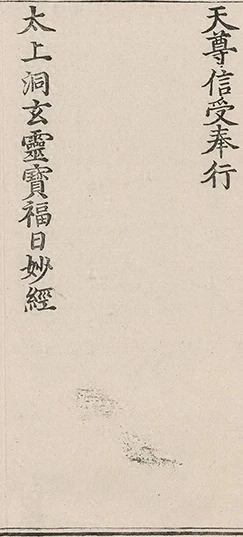 天尊信受奉行
太上洞玄靈寶福日妙經